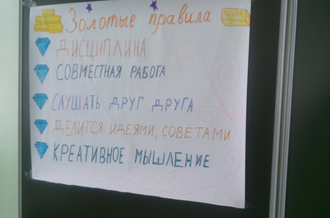 Золотые правила
ДИСЦИПЛИНА
СОВМЕСТНАЯ РАБОТА
СЛУШАТЬ ДРУГ ДРУГА
ДЕЛИТСЯ ИДЕЯМИ, СОВЕТАМИ
КРЕАТИВНОЕ МЫШЛЕНИЕ